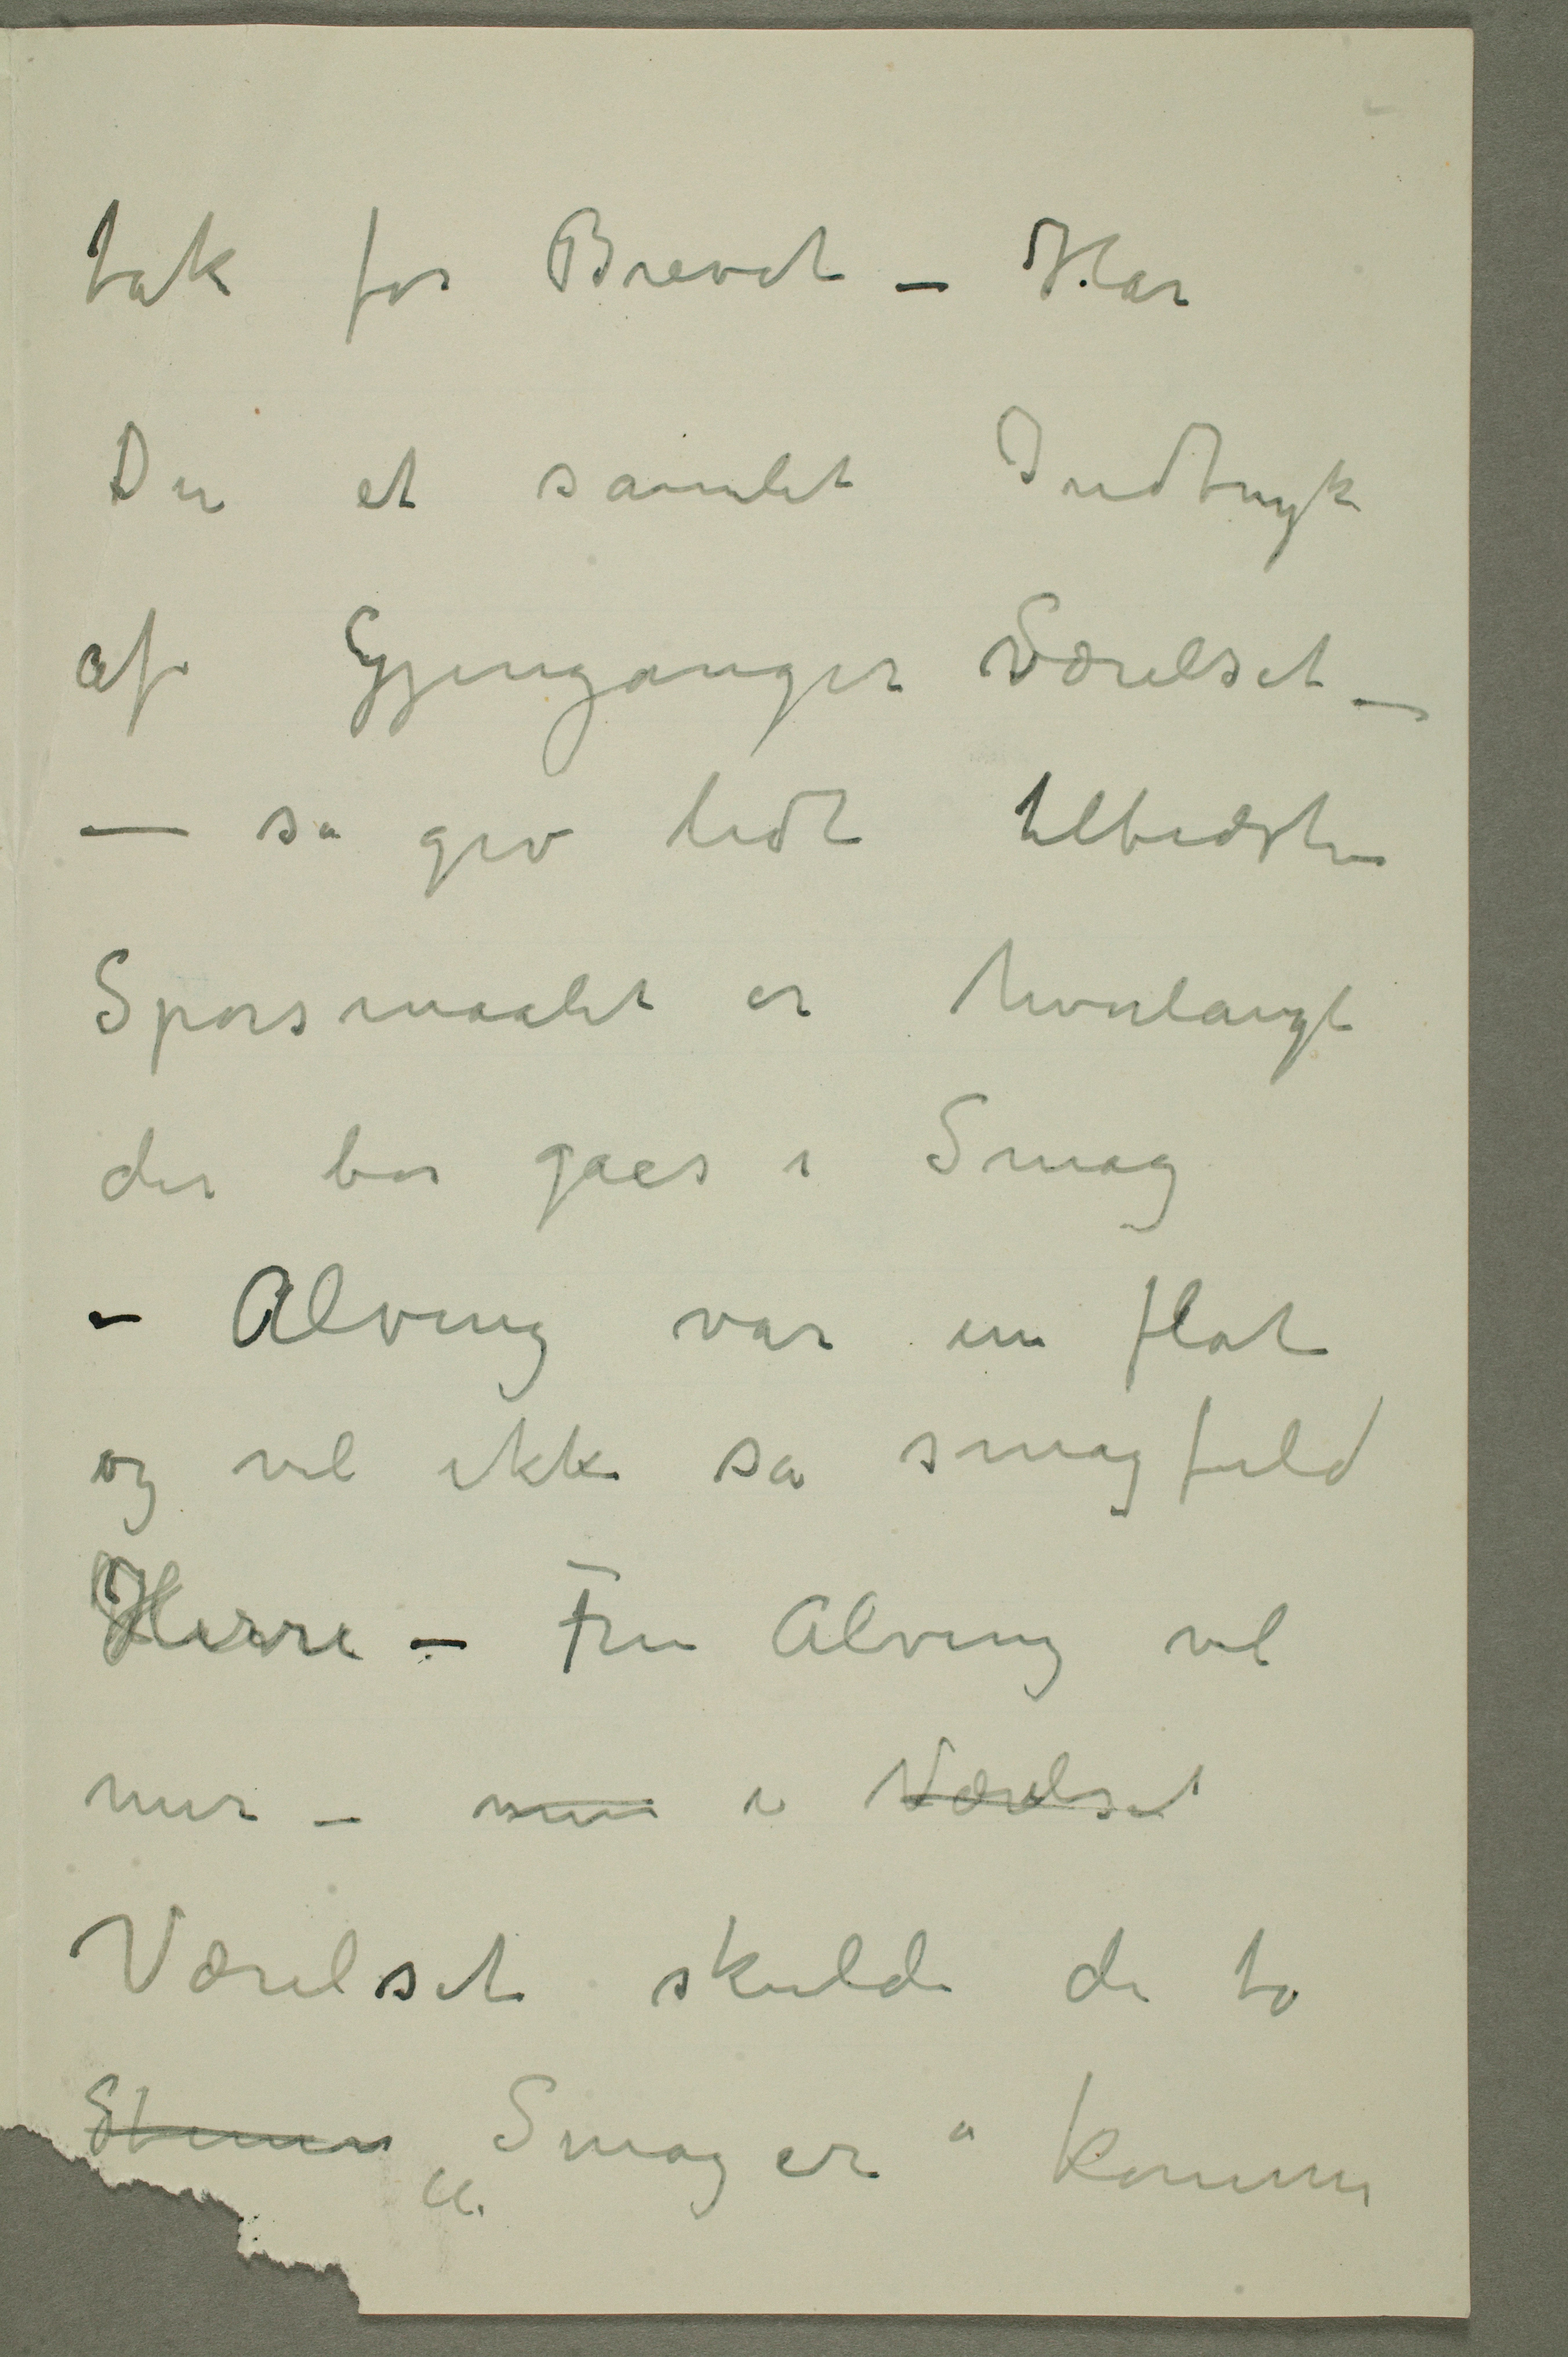 tak for Brevet – Har
Du et samlet Indtryk
af Gjenganger Værelset –
– så giv lidt tilbedste
Spørsmaalet er hvorlangt
der bør gåes i Smag
– Alving var en flot
og vel ikke så smagfuld
Herre – Fru Alving vel
mer – men i Værelset
Værelset skulde de to
„Smager“ komme